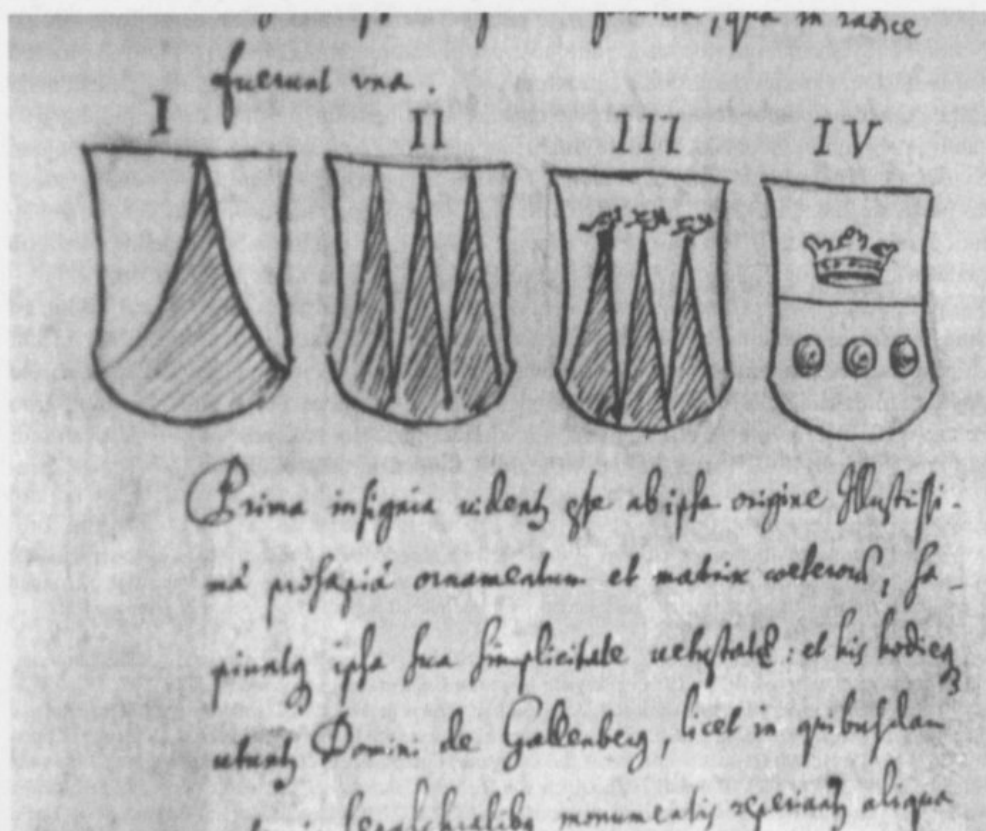 , qua in radice
fuerunt vna.
I II III IV
Prima insignia uidentꝫ esse ab ipsa origine Illustrissi-
mâ prosapiâ ornamentum et matrix coeterorũ, sa-
piuntꝫ ipsa sua simplicitate uetustatẽ: et his hodieqꝫ
utuntꝫ Domini de Gallenberg, licet in quibusdam
monumentis reperiantꝫ aliqua